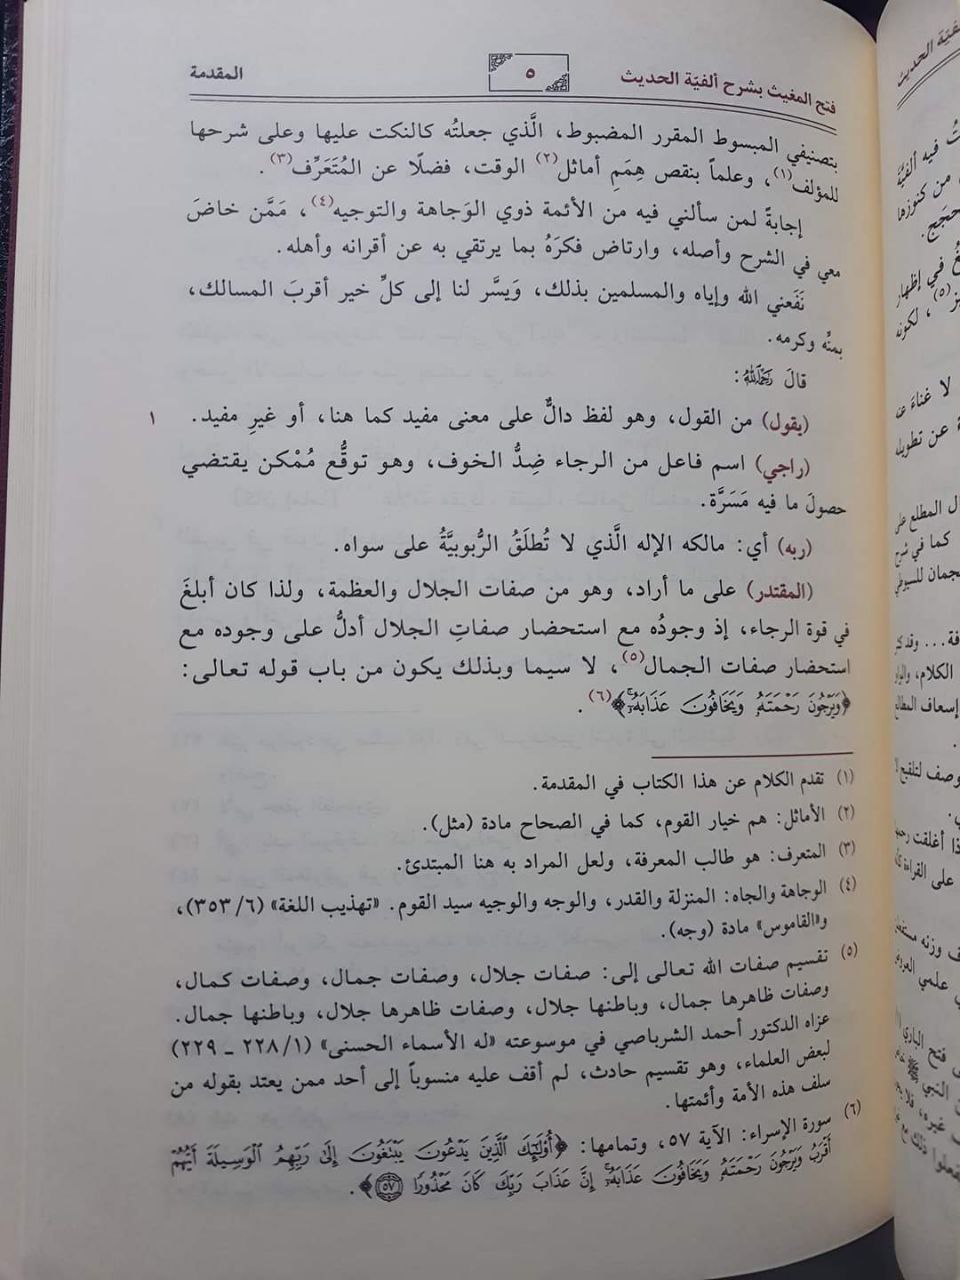 فتح المغيث بشرح ألفيّة الحديث
٥
المقدمة
بتصنيفي المبسوط المقرر المضبوط، الَّذي جعلتُه كالنكت عليها وعلى شرحها
للمؤلف(١)، وعلماً بنقص هِمَمِ أماثل(٢) الوقت، فضلًا عن المُتَعَرِّف(٣).
إجابةً لمن سألني فيه من الأئمة ذوي الوَجاهة والتوجيه(٤)، مَمَّن خاضَ
معي في الشرح وأصله، وارتاض فكرَهُ بما يرتقي به عن أقرانه وأهله.
نَفَعني الله وإياه والمسلمين بذلك، وَيسَّر لنا إلى كلِّ خير أقربَ المسالك،
بمنِّه وكرمه.
قالَ رَحِمَهُ اللهُ:
(يقول) من القول، وهو لفظ دالٌّ على معنى مفيد كما هنا، أو غيرِ مفيد.
١
(راجي) اسم فاعل من الرجاء ضِدُّ الخوف، وهو توقُّع مُمْكن يقتضي
حصولَ ما فيه مَسَرَّة.
(ربه) أي: مالكه الإله الَّذي لا تُطلَقُ الرُّبوبيَّةُ على سواه.
(المقتدر) على ما أراد، وهو من صفات الجلال والعظمة، ولذا كان أبلغَ
في قوة الرجاء، إذ وجودُه مع استحضار صفاتِ الجلال أدلُّ على وجوده مع
استحضار صفات الجمال(٥)، لا سيما وبذلك يكون من باب قوله تعالى:
﴿وَيَرْجُونَ رَحْمَتَهُۥ وَيَخَافُونَ عَذَابَهُۥٓ﴾(٦).
(١) تقدم الكلام عن هذا الكتاب في المقدمة.
(٢) الأماثل: هم خيار القوم، كما في الصحاح مادة (مثل).
(٣) المتعرف: هو طالب المعرفة، ولعل المراد به هنا المبتدئ.
(٤) الوجاهة والجاه: المنزلة والقدر، والوجه والوجيه سيد القوم. «تهذيب اللغة» (٣٥٣/٦)،
و«القاموس» مادة (وجه).
(٥) تقسيم صفات الله تعالى إلى: صفات جلال، وصفات جمال، وصفات كمال،
وصفات ظاهرها جمال، وباطنها جلال، وصفات ظاهرها جلال، وباطنها جمال.
عزاه الدكتور أحمد الشرباصي في موسوعته «له الأسماء الحسنى» (٢٢٨/١ ـ ٢٢٩)
لبعض العلماء، وهو تقسيم حادث، لم أقف عليه منسوباً إلى أحد ممن يعتد بقوله من
سلف هذه الأمة وأئمتها.
(٦) سورة الإسراء: الآية ٥٧، وتمامها: ﴿أُوْلَٰٓئِكَ ٱلَّذِينَ يَدْعُونَ يَبْتَغُونَ إِلَىٰ رَبِّهِمُ ٱلْوَسِيلَةَ أَيُّهُمْ
أَقْرَبُ وَيَرْجُونَ رَحْمَتَهُۥ وَيَخَافُونَ عَذَابَهُۥٓ إِنَّ عَذَابَ رَبِّكَ كَانَ مَحْذُورًا ٥٧﴾.